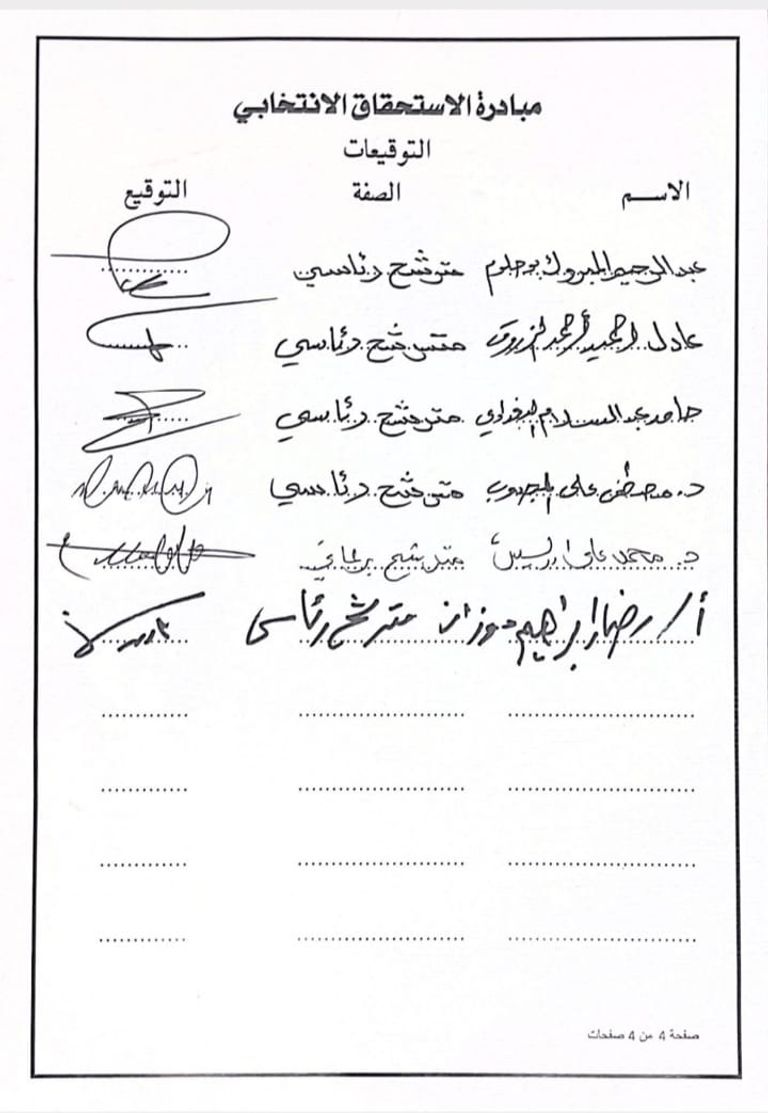 مبادرة الاستحقاق الانتخابي
التوقيعات
الاسم الصفة التوقيع
عبد الرحيم المبروك بوحلوم مترشح رئاسي
عادل احميد أحمد الزروق مترشح رئاسي
حامد عبد السلام البغدادي مترشح رئاسي
د. مصطفى على المجدوب مترشح رئاسي
د. محمد علي مترشح
أ/ ابراهيم مترشح رئاسى
صفحة 4 من 4 صفحات